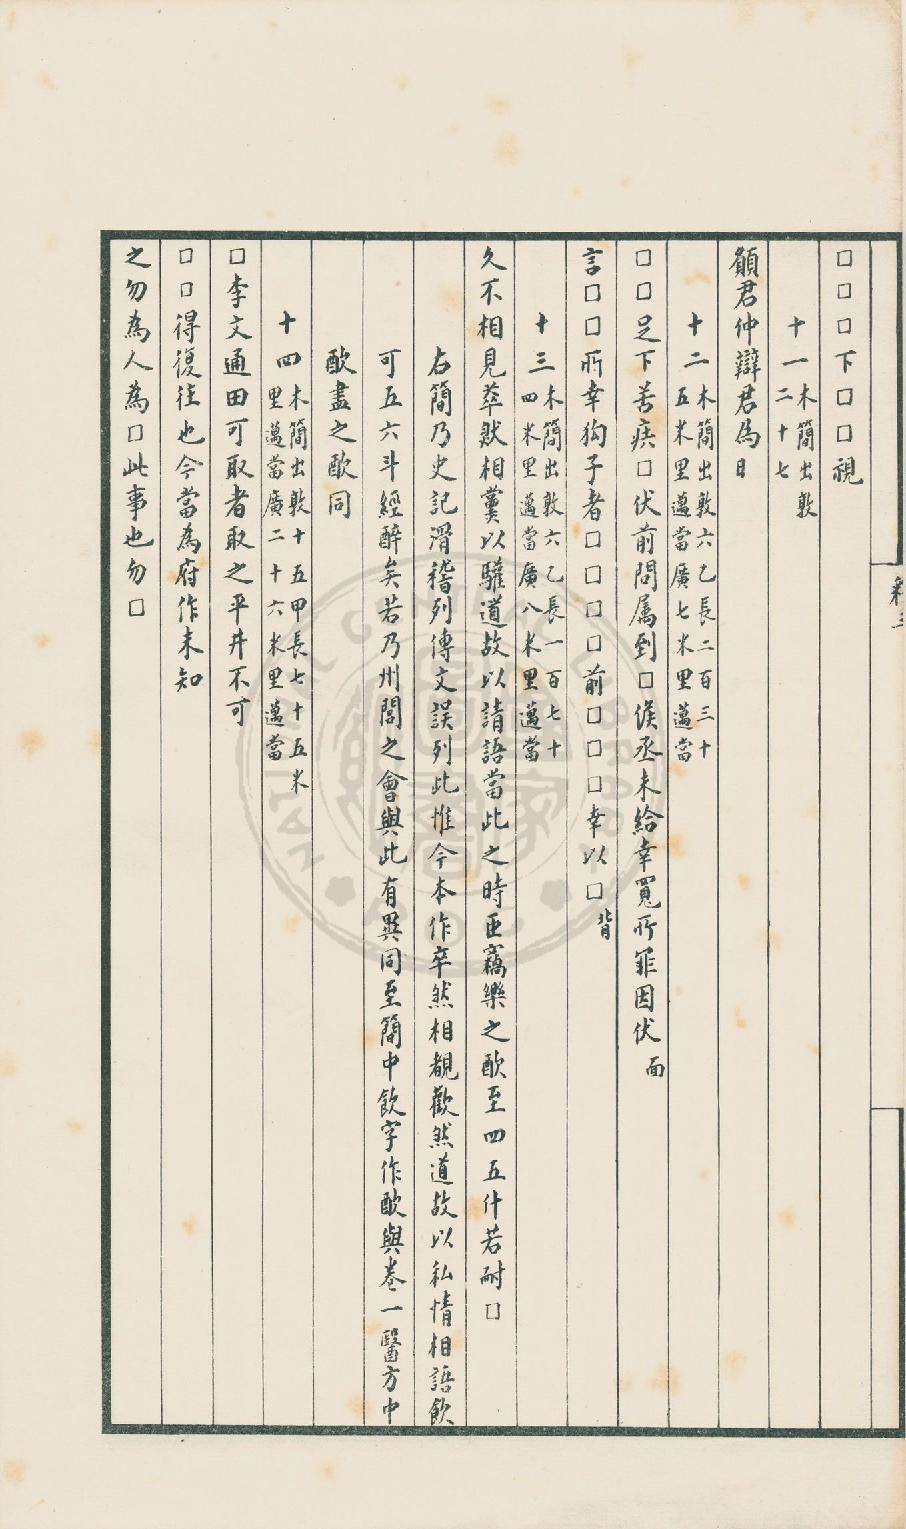 □□□下□□視
十一木簡出敦二十七
願君仲辯君為日
十二木簡出敦六乙長二百三十五米里邁當廣七米里邁當
□□足下善疾□伏前問属到□候丞未給幸寬所罪因伏面
言□□所幸狗子者□□□□前□□□幸以□背
十三木簡出敦六乙長一百七十四米里邁當廣八米里邁當
久不相見萃然相黨以驩道故以請語當此之時臣竊樂之㱃至四五什若耐□
右簡乃史記滑稽列傳文誤列此惟今本作卒然相覩歡然道故以私情相語飲
可五六斗經醉矣若乃州閭之會與此有異同至簡中飲字作㱃與卷一醫方中
㱃盡之㱃同
十四木簡出敦十五甲長七十五米里邁當廣二十六米里邁當
□李文通田可取者取之平井不可
□□得復往也今當為府作未知
之勿為人為□此事也勿□